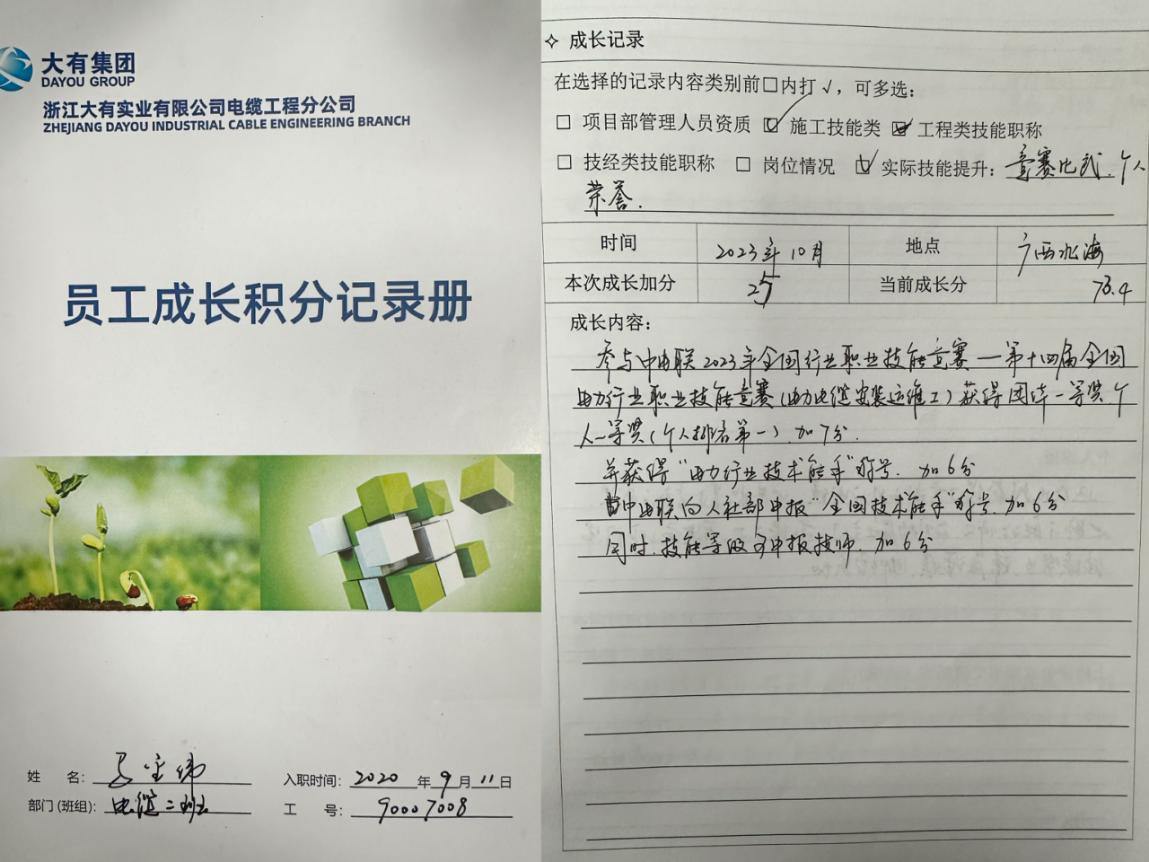 大有集团
DAYOU GROUP
浙江大有实业有限公司电缆工程分公司
ZHEJIANG DAYOU INDUSTRIAL CABLE ENGINEERING BRANCH
员工成长积分记录册
姓 名:
入职时间: 2020 年 9 月 11 日
部门(班组): 电缆二班
工 号: 90007008
✧ 成长记录
在选择的记录内容类别前□内打√，可多选:
□ 项目部管理人员资质 ☑ 施工技能类 ☑ 工程类技能职称
□ 技经类技能职称 □ 岗位情况 ☑ 实际技能提升: 竞赛比武、个人
荣誉.
时间 2023年10月 地点 广西北海
本次成长加分 25 当前成长分 78.4
成长内容:
参与中电联2023年全国行业职业技能竞赛—第十四届全国
电力行业职业技能竞赛(电力电缆安装运维工)获得团体一等奖个
人一等奖(个人排名第一).加7分.
并获得"电力行业技术能手"称号. 加6分
由中电联向人社部申报"全国技术能手"称号.加6分
同时.技能等级可申报技师.加6分